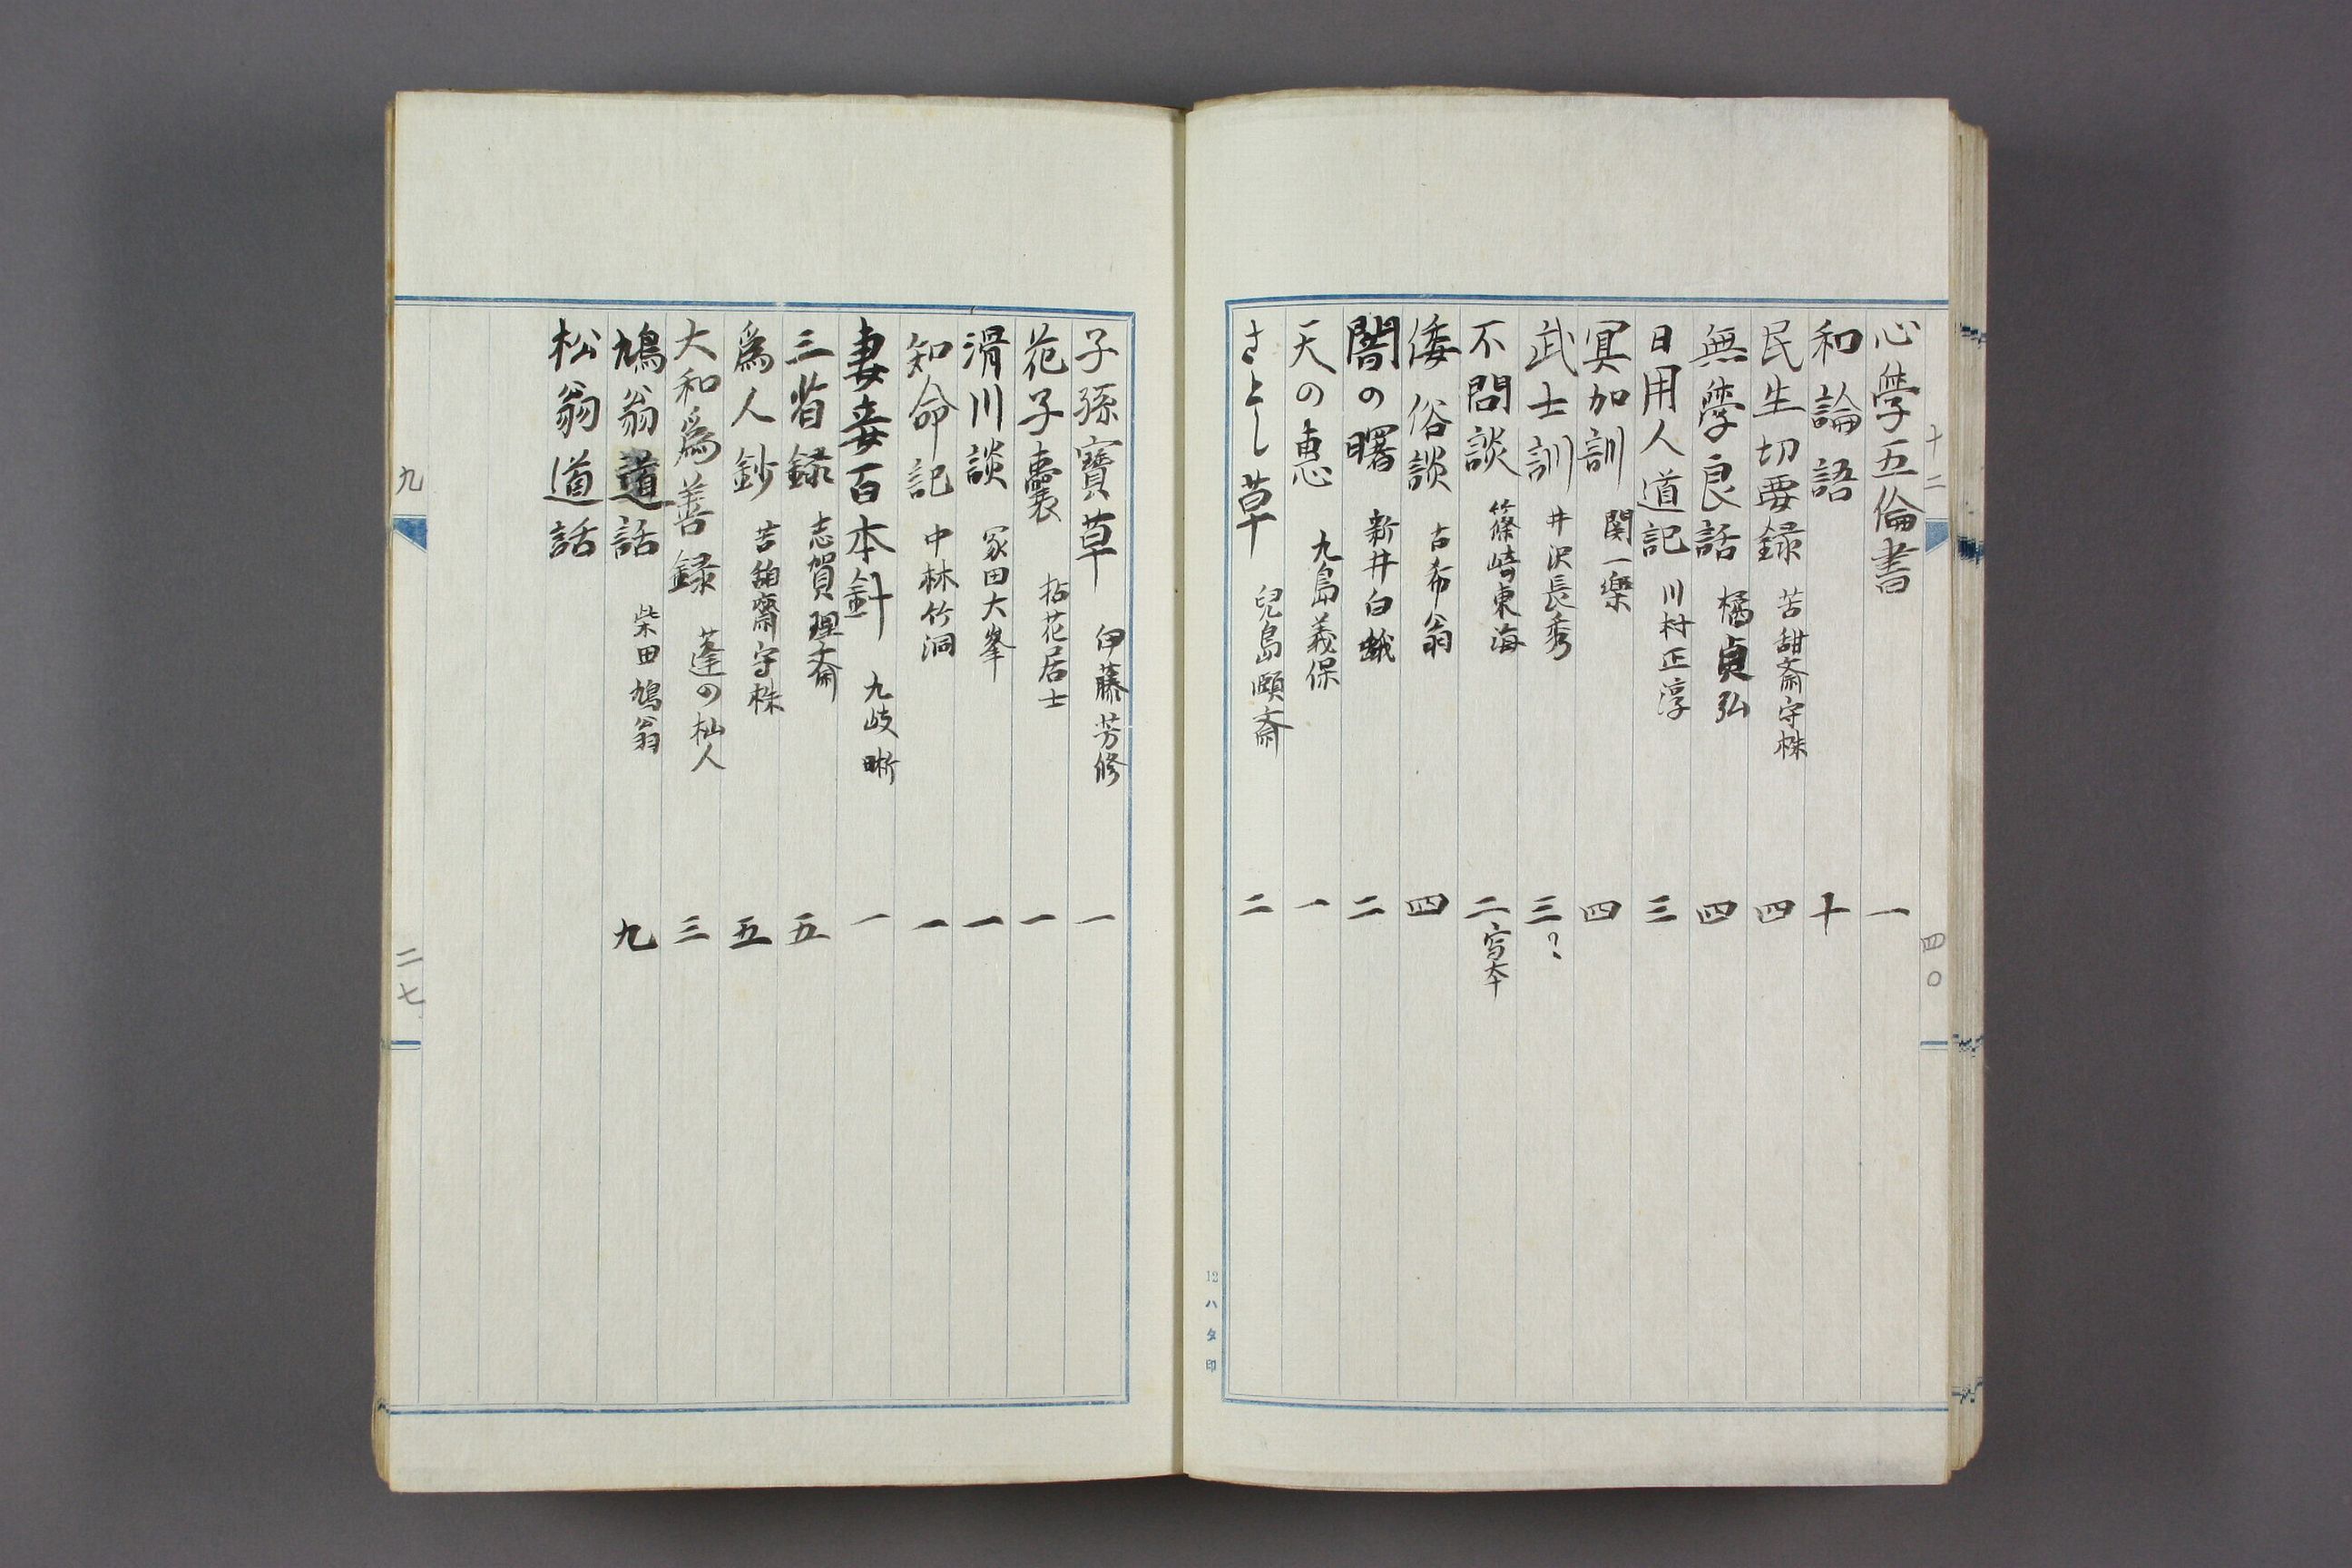 十二
四〇
心學五倫書 一
和論語 十
民生切要録 苦甜斎守株 四
無學良話 橘貞弘 四
日用人道記 川村正淳 三
冥加訓 関一楽 四
武士訓 井沢長秀 三?
不問談 篠崎東海 二 写本
倭俗談 古希翁 四
闇の曙 新井白蛾 二
天の惠 九島義保 一
さとし草 兒島頤斎 二
12ハタ印
子孫寶草 伊藤芳修 一
花子囊 拈花居士 一
滑川談 冢田大峯 一
知命記 中林竹洞 一
妻妾百本針 九岐晰 一
三省録 志賀理斎 五
爲人鈔 苦甜齋守株 五
大和爲善録 蓬の杣人 三
鳩翁道話 柴田鳩翁 九
松翁道話
九
二七